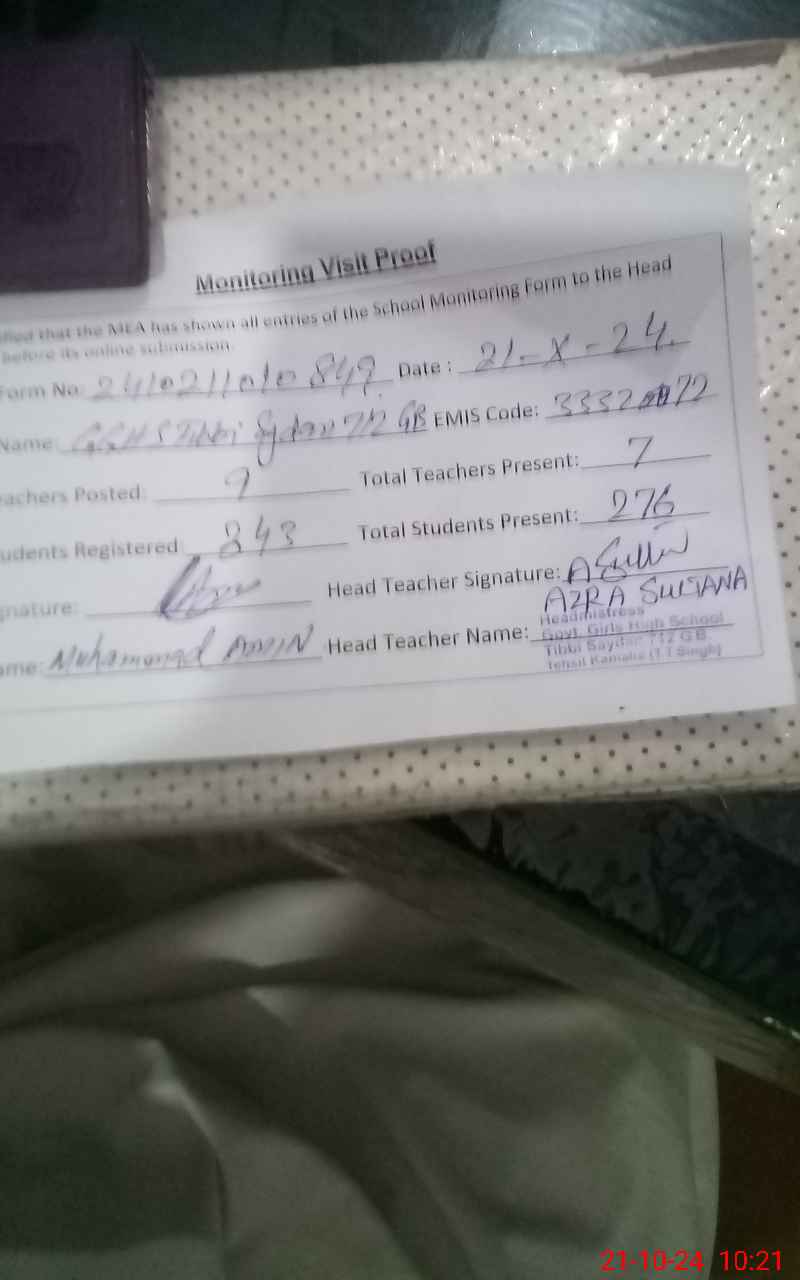 Monitoring Visit Proof
that the MEA has shown all entries of the School Monitoring Form to the Head
before its online submission.
Form No: Date : 21-X-24.
Name: GGHS Tibbi 712 GB EMIS Code:
Teachers Posted: 9 Total Teachers Present: 7
Students Registered 343 Total Students Present: 276
Signature: Head Teacher Signature:
AZRA SULTANA
Name: Muhammad AMIN Head Teacher Name:
Headmistress
Govt. Girls High School
Tibbi Saydan 712 G.B.
Tehsil Kamalia (T.T Singh)
21-10-24 10:21